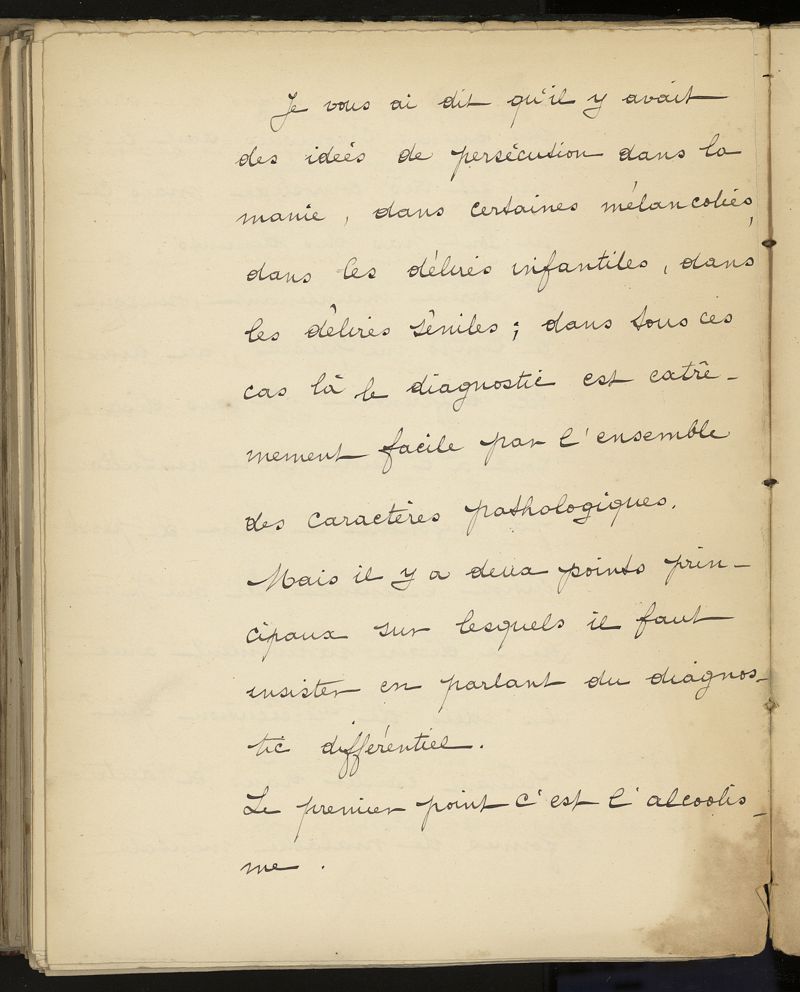 Je vous ai dit qu'il y avait
des idées de persécution dans la
manie, dans certaines mélancolies,
dans les délires infantiles, dans
les délires séniles ; dans tous ces
cas là le diagnostic est extrê-
mement facile par l'ensemble
des caractères pathologiques.
Mais il y a deux points prin-
cipaux sur lesquels il faut
insister en parlant du diagnos-
tic différentiel.
Le premier point c'est l'alcoolis-
me.